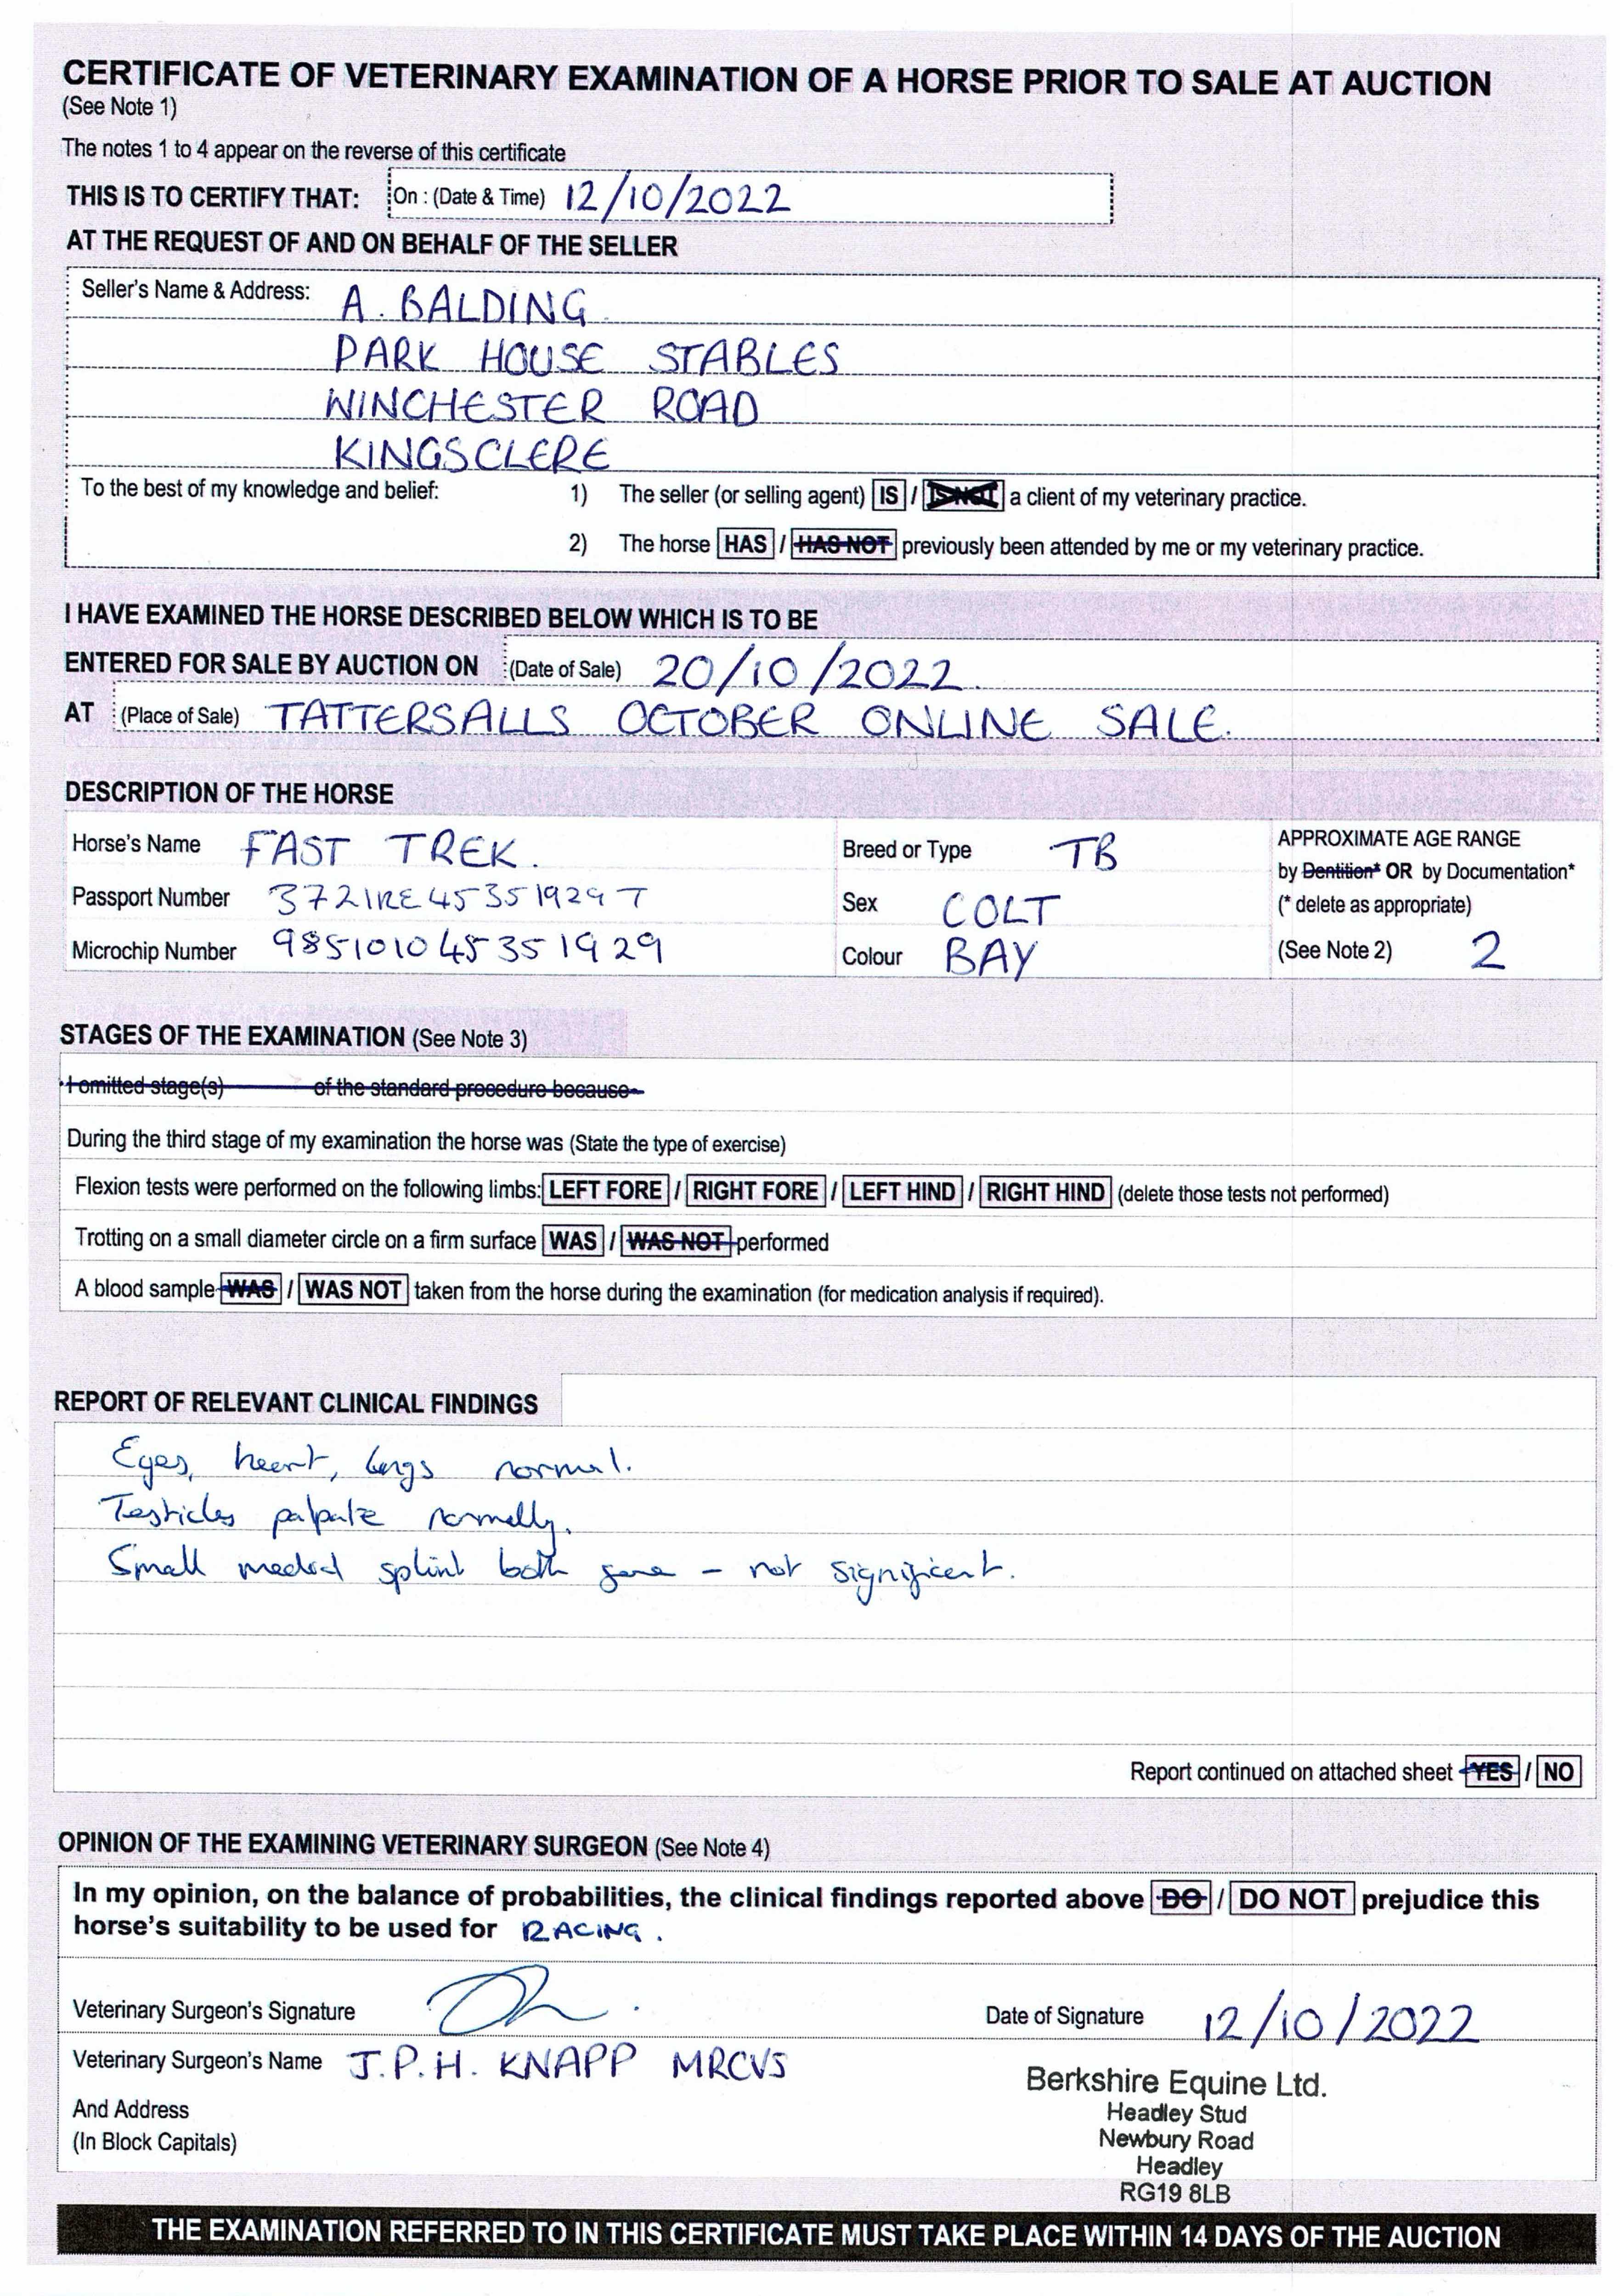 CERTIFICATE OF VETERINARY EXAMINATION OF A HORSE PRIOR TO SALE AT AUCTION
(See Note 1)
The notes 1 to 4 appear on the reverse of this certificate
THIS IS TO CERTIFY THAT: On : (Date & Time) 12/10/2022
AT THE REQUEST OF AND ON BEHALF OF THE SELLER
Seller's Name & Address: A. BALDING
PARK HOUSE STABLES
WINCHESTER ROAD
KINGSCLERE
To the best of my knowledge and belief: 1) The seller (or selling agent) IS / IS NOT a client of my veterinary practice.
2) The horse HAS / HAS NOT previously been attended by me or my veterinary practice.
I HAVE EXAMINED THE HORSE DESCRIBED BELOW WHICH IS TO BE
ENTERED FOR SALE BY AUCTION ON (Date of Sale) 20/10/2022.
AT (Place of Sale) TATTERSALLS OCTOBER ONLINE SALE.
DESCRIPTION OF THE HORSE
Horse's Name FAST TREK. Breed or Type TB APPROXIMATE AGE RANGE
by Dentition* OR by Documentation*
Passport Number 372IRE45351929T Sex COLT (* delete as appropriate)
Microchip Number 985101045351929 Colour BAY (See Note 2) 2
STAGES OF THE EXAMINATION (See Note 3)
I omitted stage(s) of the standard procedure because
During the third stage of my examination the horse was (State the type of exercise)
Flexion tests were performed on the following limbs: LEFT FORE / RIGHT FORE / LEFT HIND / RIGHT HIND (delete those tests not performed)
Trotting on a small diameter circle on a firm surface WAS / WAS NOT performed
A blood sample WAS / WAS NOT taken from the horse during the examination (for medication analysis if required).
REPORT OF RELEVANT CLINICAL FINDINGS
Eyes, heart, lungs normal.
Testicles palpate normally.
Small medial splint both fore - not significant.
Report continued on attached sheet YES / NO
OPINION OF THE EXAMINING VETERINARY SURGEON (See Note 4)
In my opinion, on the balance of probabilities, the clinical findings reported above DO / DO NOT prejudice this
horse's suitability to be used for RACING.
Veterinary Surgeon's Signature Date of Signature 12/10/2022
Veterinary Surgeon's Name J.P.H. KNAPP MRCVS
And Address
(In Block Capitals)
Berkshire Equine Ltd.
Headley Stud
Newbury Road
Headley
RG19 8LB
THE EXAMINATION REFERRED TO IN THIS CERTIFICATE MUST TAKE PLACE WITHIN 14 DAYS OF THE AUCTION